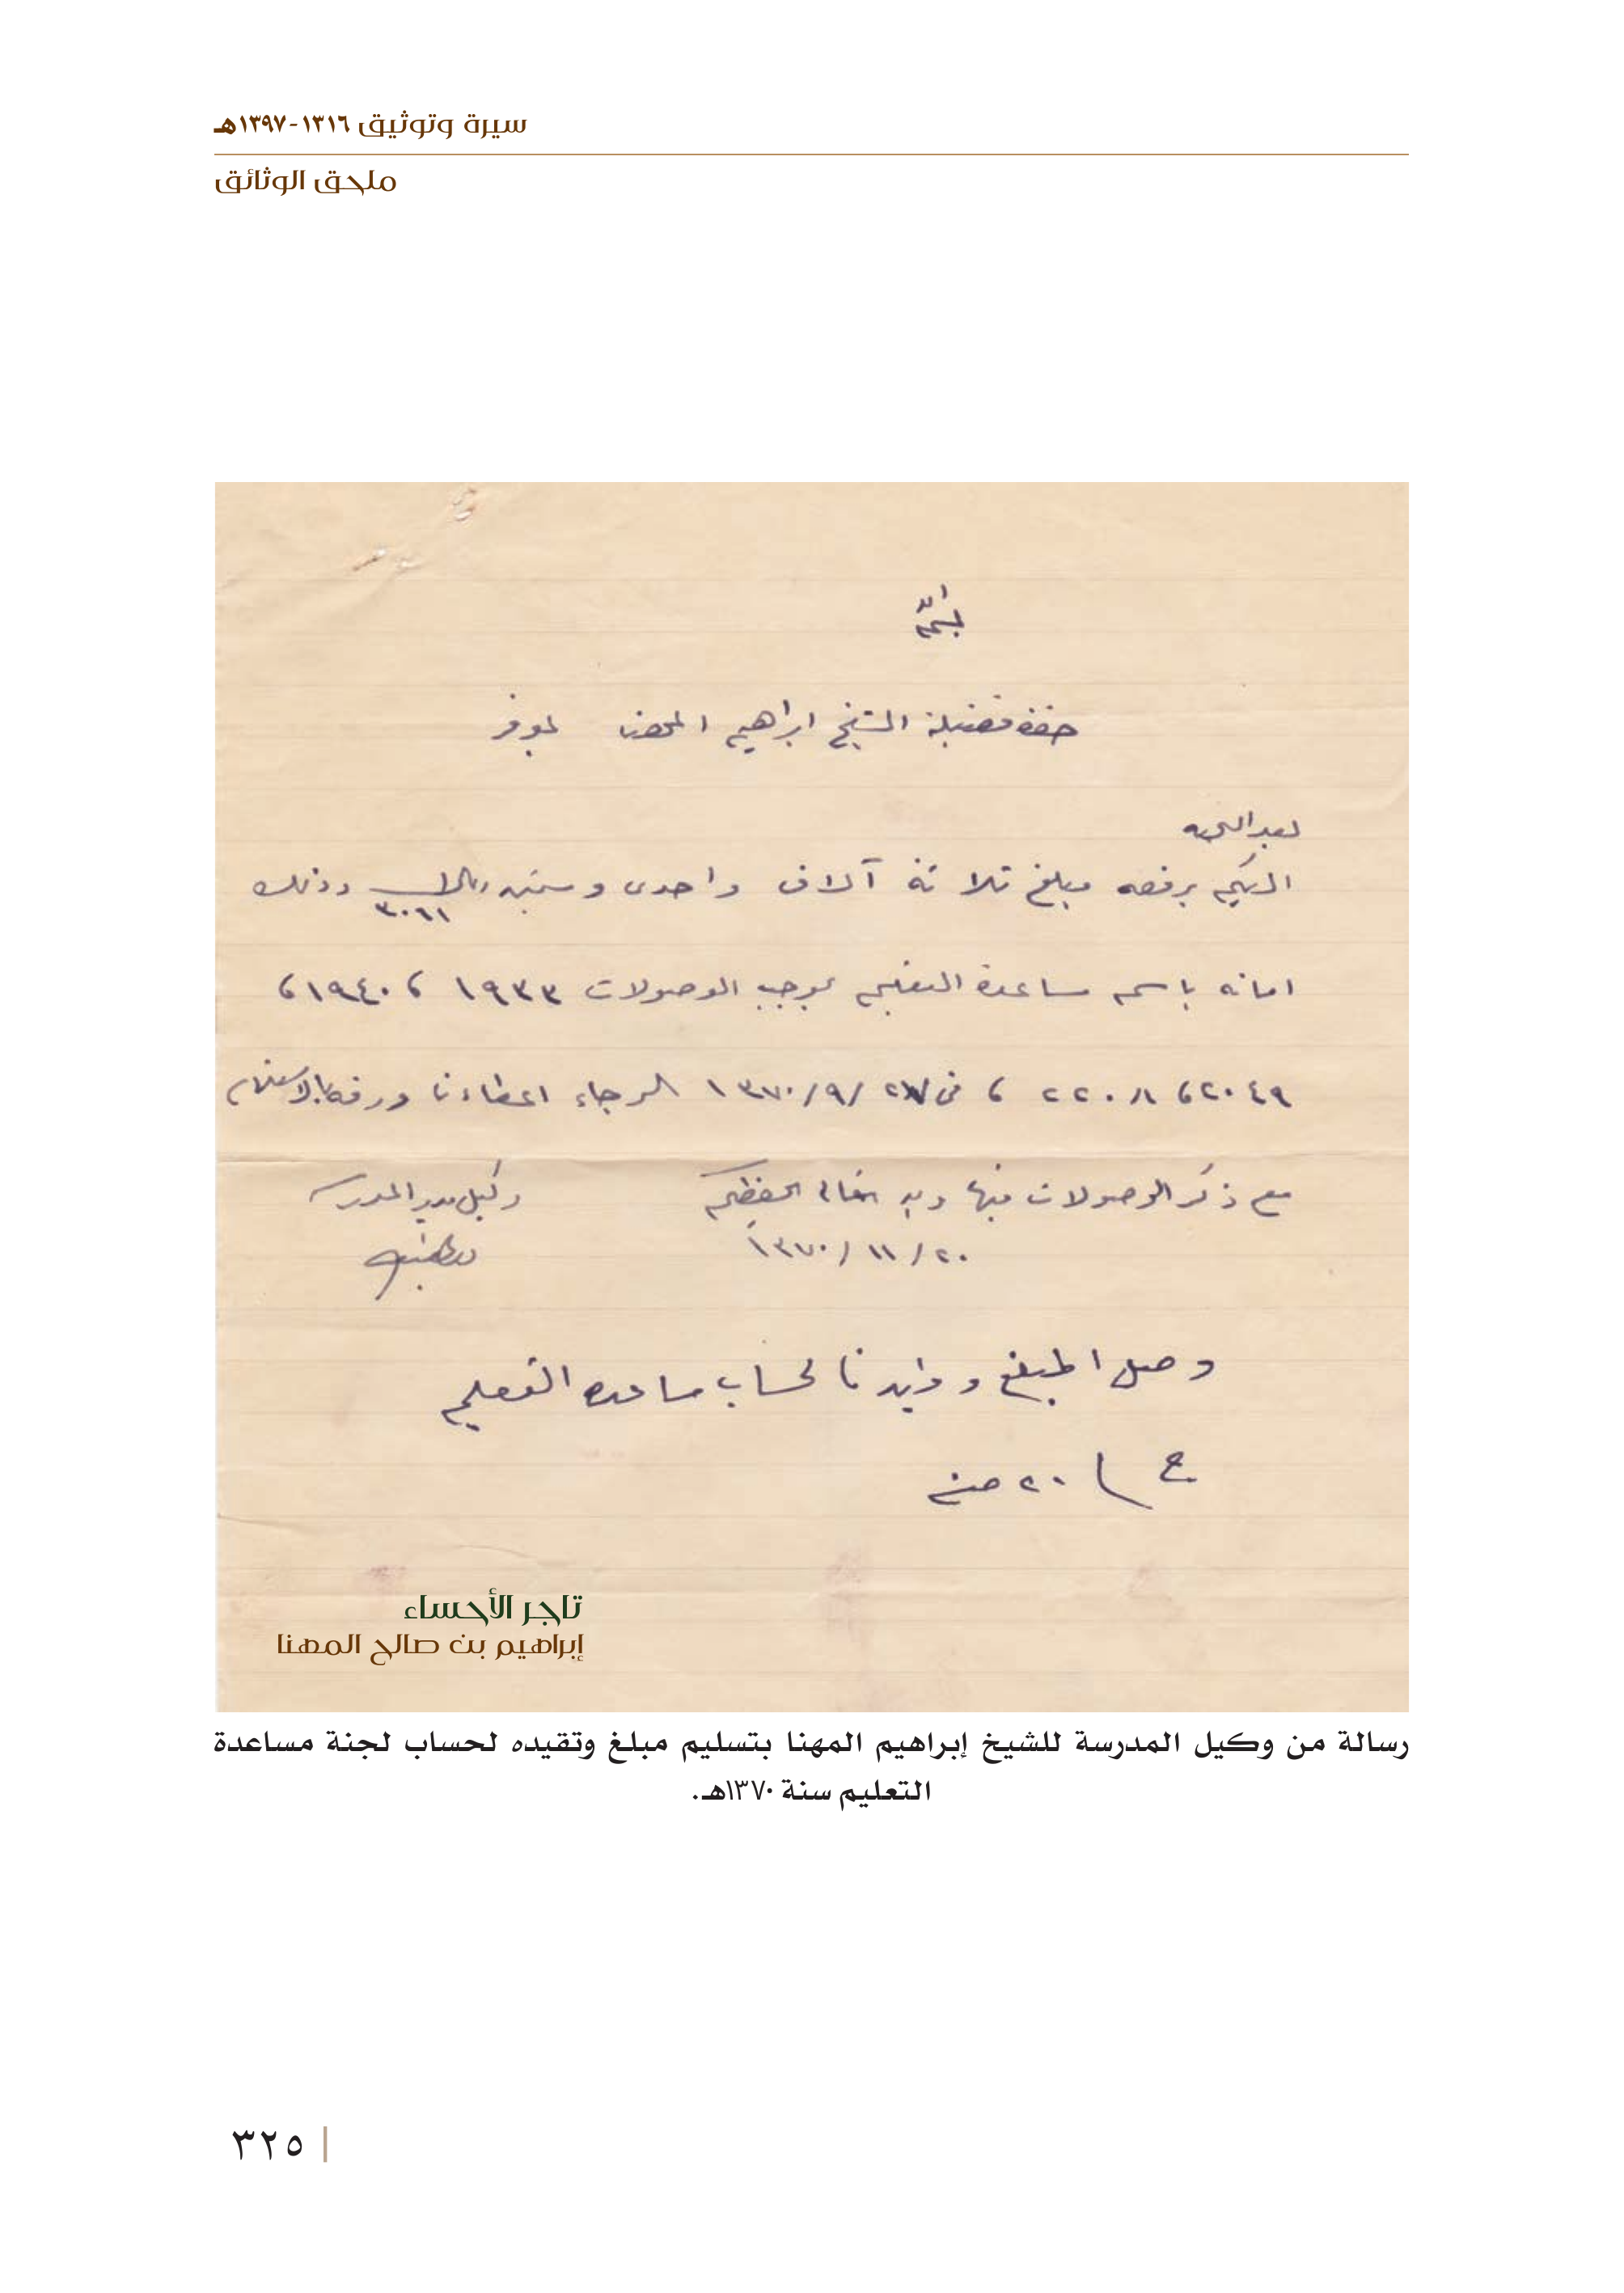 سيرة وتوثيق ١٣١٦-١٣٩٧هـ
ملحق الوثائق
بسم الله
حضرة فضيلة الشيخ ابراهيم المهنا الموقر
بعد التحيه
اليكم برفقه مبلغ ثلاثة آلاف واحدى وستين ريال وذلك
٣٠٦١
امانه باسم مساعدة التعليم بموجب الوصولات ١٩٣٣ ، ١٩٤٠ ،
٢٠٤٩ ، ٢٢٠٨ ، في ٢٧/٩/١٣٧٠ الرجاء اعطاءنا ورقة بالاستلام
مع ذكر الوصولات فيها والله تعالى يحفظكم
وكيل مدير المدرسه
٢٠/١١/١٣٧٠
وصل المبلغ وقيدنا لحساب مساعده التعليم
٢٠ منه
تاجر الأحساء
إبراهيم بن صالح المهنا
رسالة من وكيل المدرسة للشيخ إبراهيم المهنا بتسليم مبلغ وتقيده لحساب لجنة مساعدة
التعليم سنة ١٣٧٠هـ.
٣٢٥